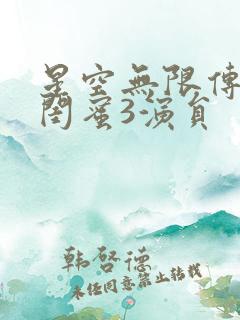 星空無限傳
閨蜜3-演員
韩啓德
未经同意禁止转载